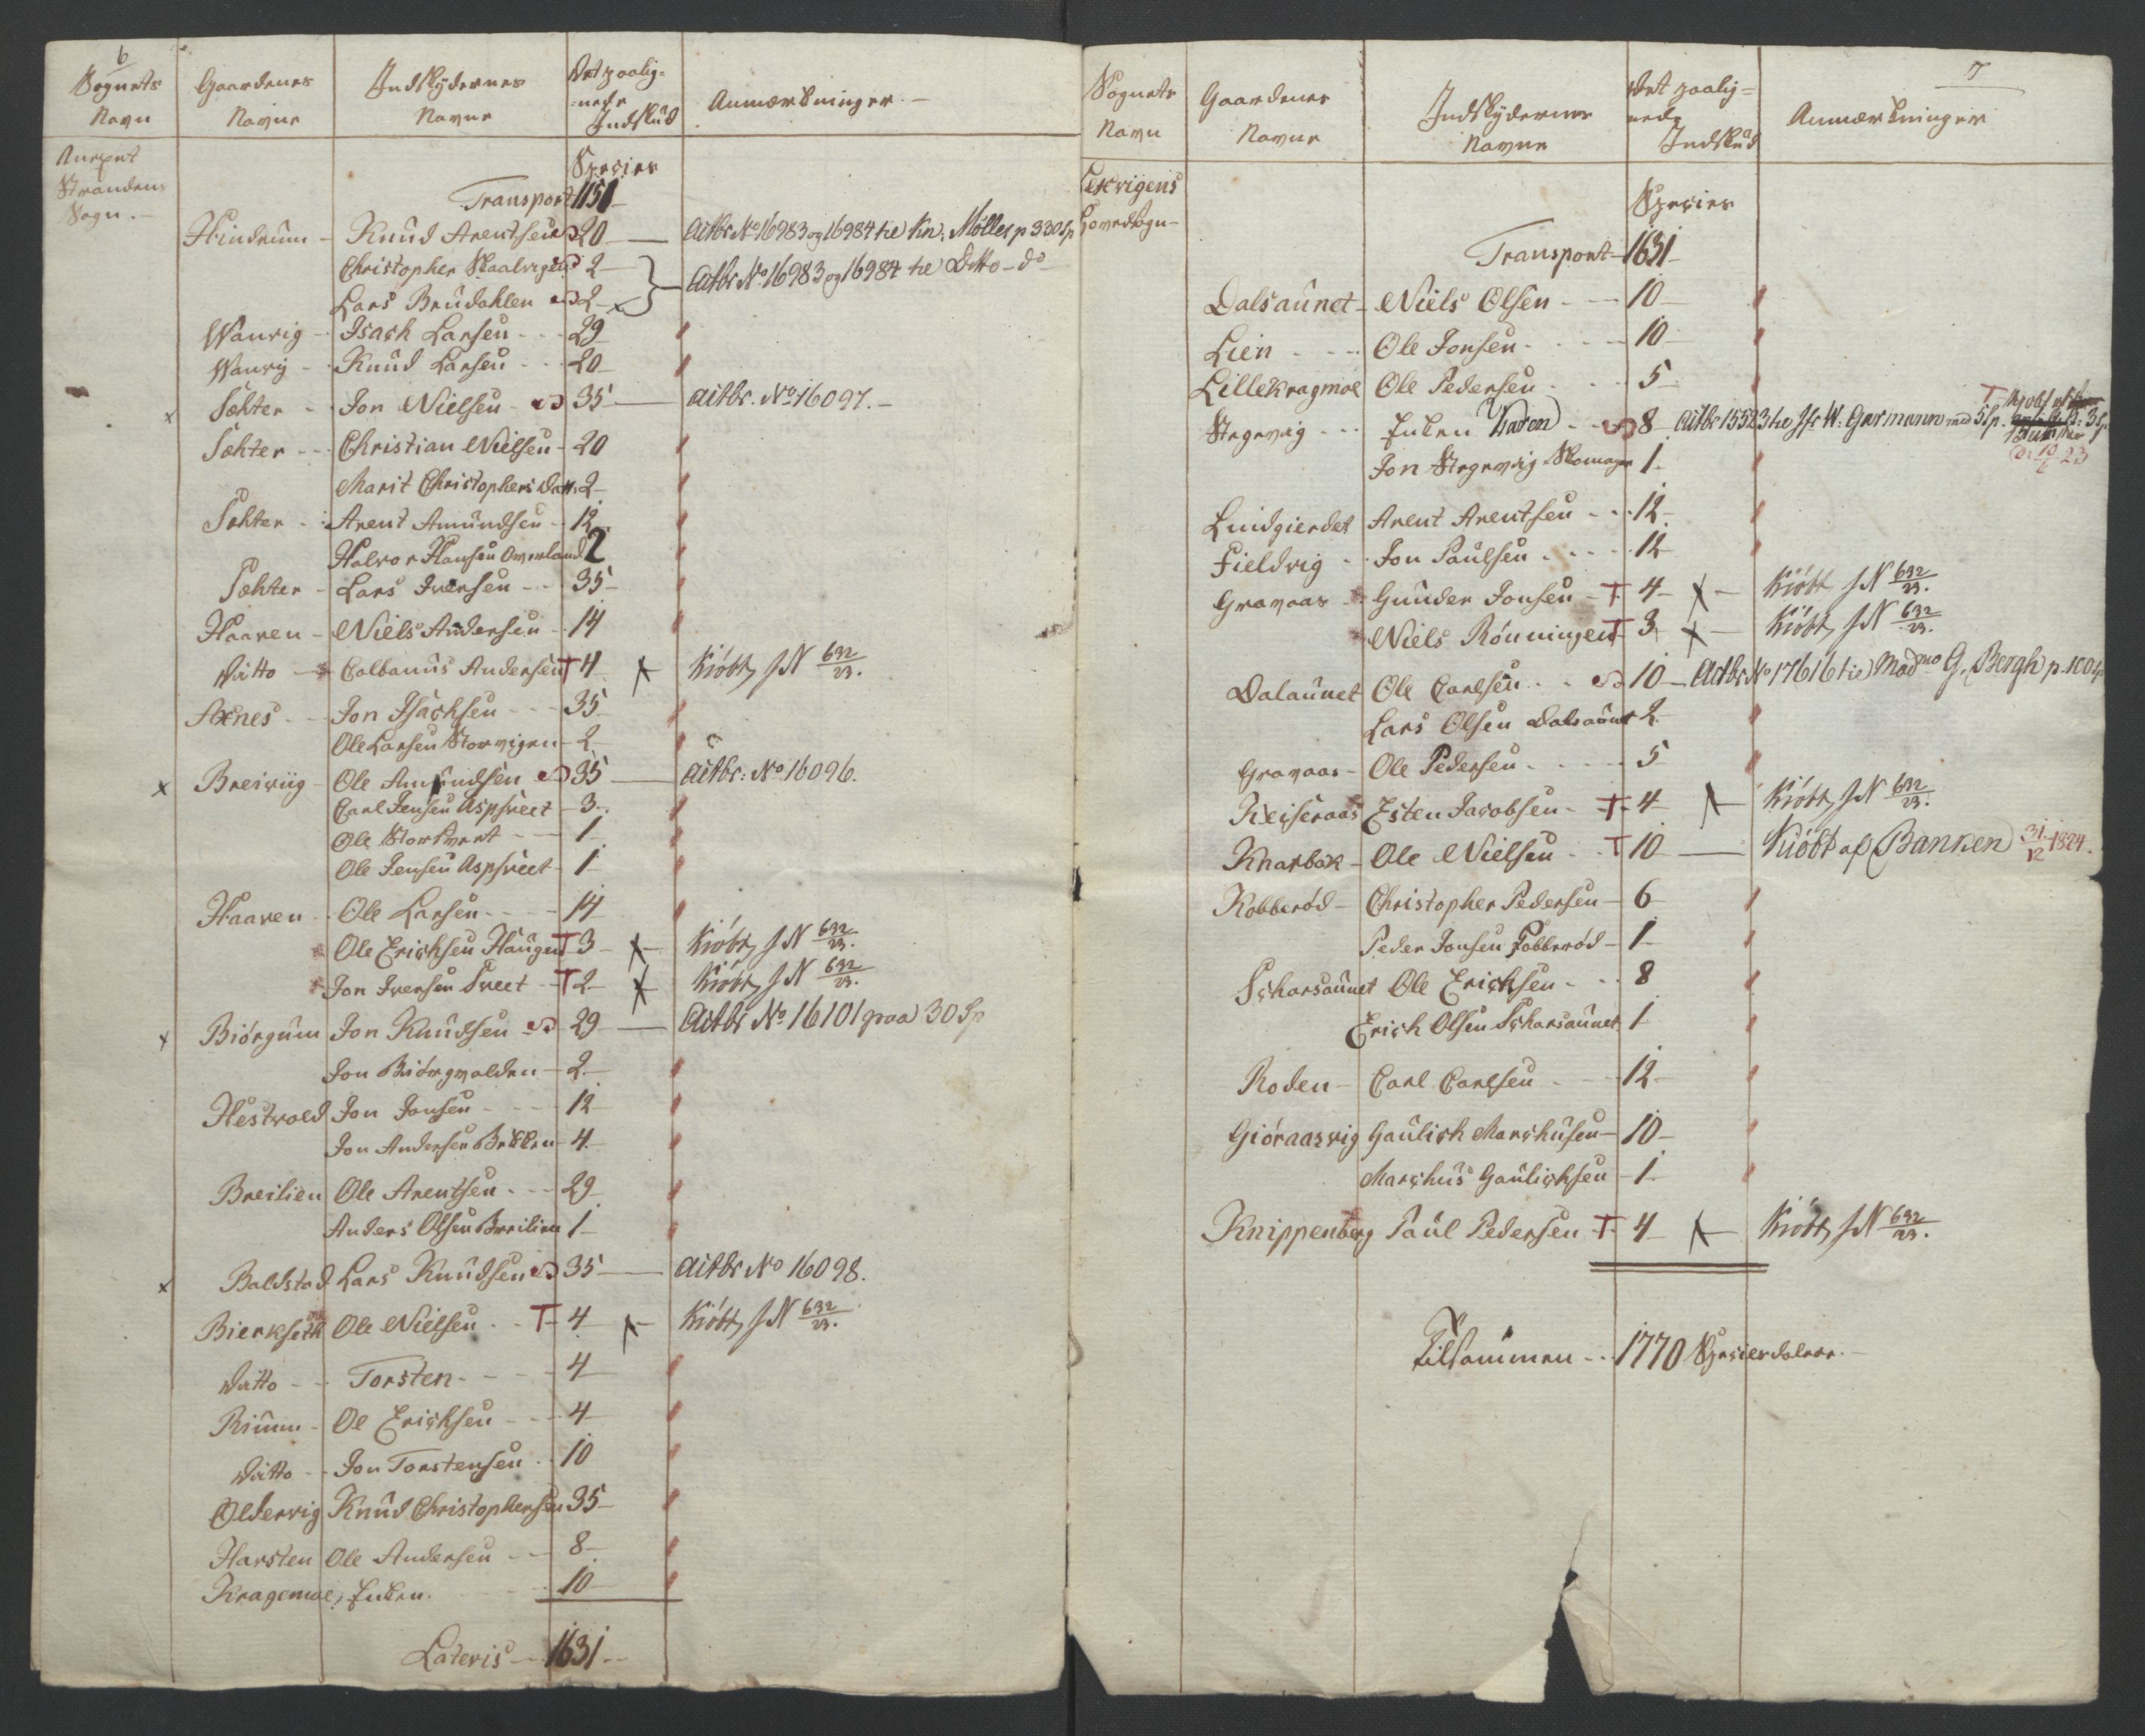 6
Sognets Navn | Gaardenes Navne | Indskydernes Navne | Det paalig= =nede Indskud | Anmærkninger.
Annexet Strandens Sogn.
Species
Transport 1151
Hindrum - Knud Arentsen 20 — Actbr No 16983 og 16984 til Kn. Møller p 330 Sp
Christopher Skaalvigen 2
Lars Brudahlen 2 } Actbr No 16983 og 16984 til Ditto - do
Wanvig - Isach Larsen - - 29
Wanvig - Knud Larsen - - 20
x Sæhter - Jon Nielsen - 35 — actbr. No 16097.
Sæhter - - Christian Nielsen - 20
Marit Christophersdatt. 2
Sæhter - Arent Amundsen - 12
Halvor Hansen Overland 2
Sæhter - Lars Iversen - - 35
Haaren - Niels Andersen - 14
Ditto - Colbanus Andersen T 4 x Kiøbt, J N 632/23.
Axnes - - Jon Isachsen - - 35
Ole Larsen Storvigen - 2
x Breivig - Ole Amundsen 35 — actbr: No 16096.
Carl Jensen Aspsveet - 3
Ole Stortveet - - 1
Ole Jensen Aspsveet - 1
Haaren - Ole Larsen - - 14
Ole Erichsen Haugen T 3 x Kiøbt, J N 632/23.
Jon Iversen Sveet - T 2 x Kiøbt, J N 632/23.
x Biørgum Jon Knudsen - 29 — Actbr No 16101 paa 30 Sp
Jon Biørgvolden - 2
Hestvold Jon Jonsen - - 12
Jon Andersen Bekken - 4
Breilien Ole Arentsen - - 29
Anders Olsen Breilien 1
x Baldstad Lars Knudsen 35 — actbr No 16098.
Bierkseth Ole Nielsen - - T 4 x Kiøbt, J N 632/23.
Ditto - - Torsten - - - 4
Rimm - Ole Erichsen - - 4
Ditto - - Jon Torstensen - 10
Oldervig Knud Christophersen 35
Harsten Ole Andersen - - 8
Kragemoe, Enken. 10
Lateris - - 1631 - -
7
Sognets Navn | Gaardenes Navne | Indskydernes Navne | Det paalig= nede Indskud | Anmærkninger
Lexvigens Hovedsogn -
Species
Transport - 1631
Dalsaunet - Niels Olsen - - 10
Lien - - - Ole Jonsen - - - 10
Lillekragmoe Ole Pedersen - - 5
Stegevig - - Enken Karen - - 8 Actbr 15523 til Jfr W: Garmann med 5 Sp.
Jon Stegevig Skomager 1
Lundgierdet Arent Arentsen - - 12
Fieldvig - - Jon Paulsen - - - 12
Gravaas - Gunder Jonsen - T 4 x - Kiøbt J N 632/23.
Niels Rønningen T 3 x - Kiøbt, J N 632/23.
Dalaunet Ole Carlsen - - 10 — Actbr No 17616 til Madme G. Bergh p. 100 Sp
Lars Olsen Dalsaunet 2
Gravaas - Ole Pedersen - - - 5
Keiseraas Esten Jacobsen - T 4 x Kiøbt, J N 632/23.
Knarbak - Ole Nielsen - - T 10 — Kiøbt af Banken 31/12 1824.
Kobberød - Christopher Pedersen - 6
Peder Jonsen Kobberød - 1
Scharsaunet Ole Erichsen - - 8
Erich Olsen Scharsaunet 1
Roden - Carl Carlsen - - 12
Giøraasvig Gaulich Marchusen - 10
Marchus Gaulichsen - 1
Knippenberg Paul Pedersen T 4 x Kiøbt, J N 632/23.
Tilsammen - - 1770 Speciesdaler. -